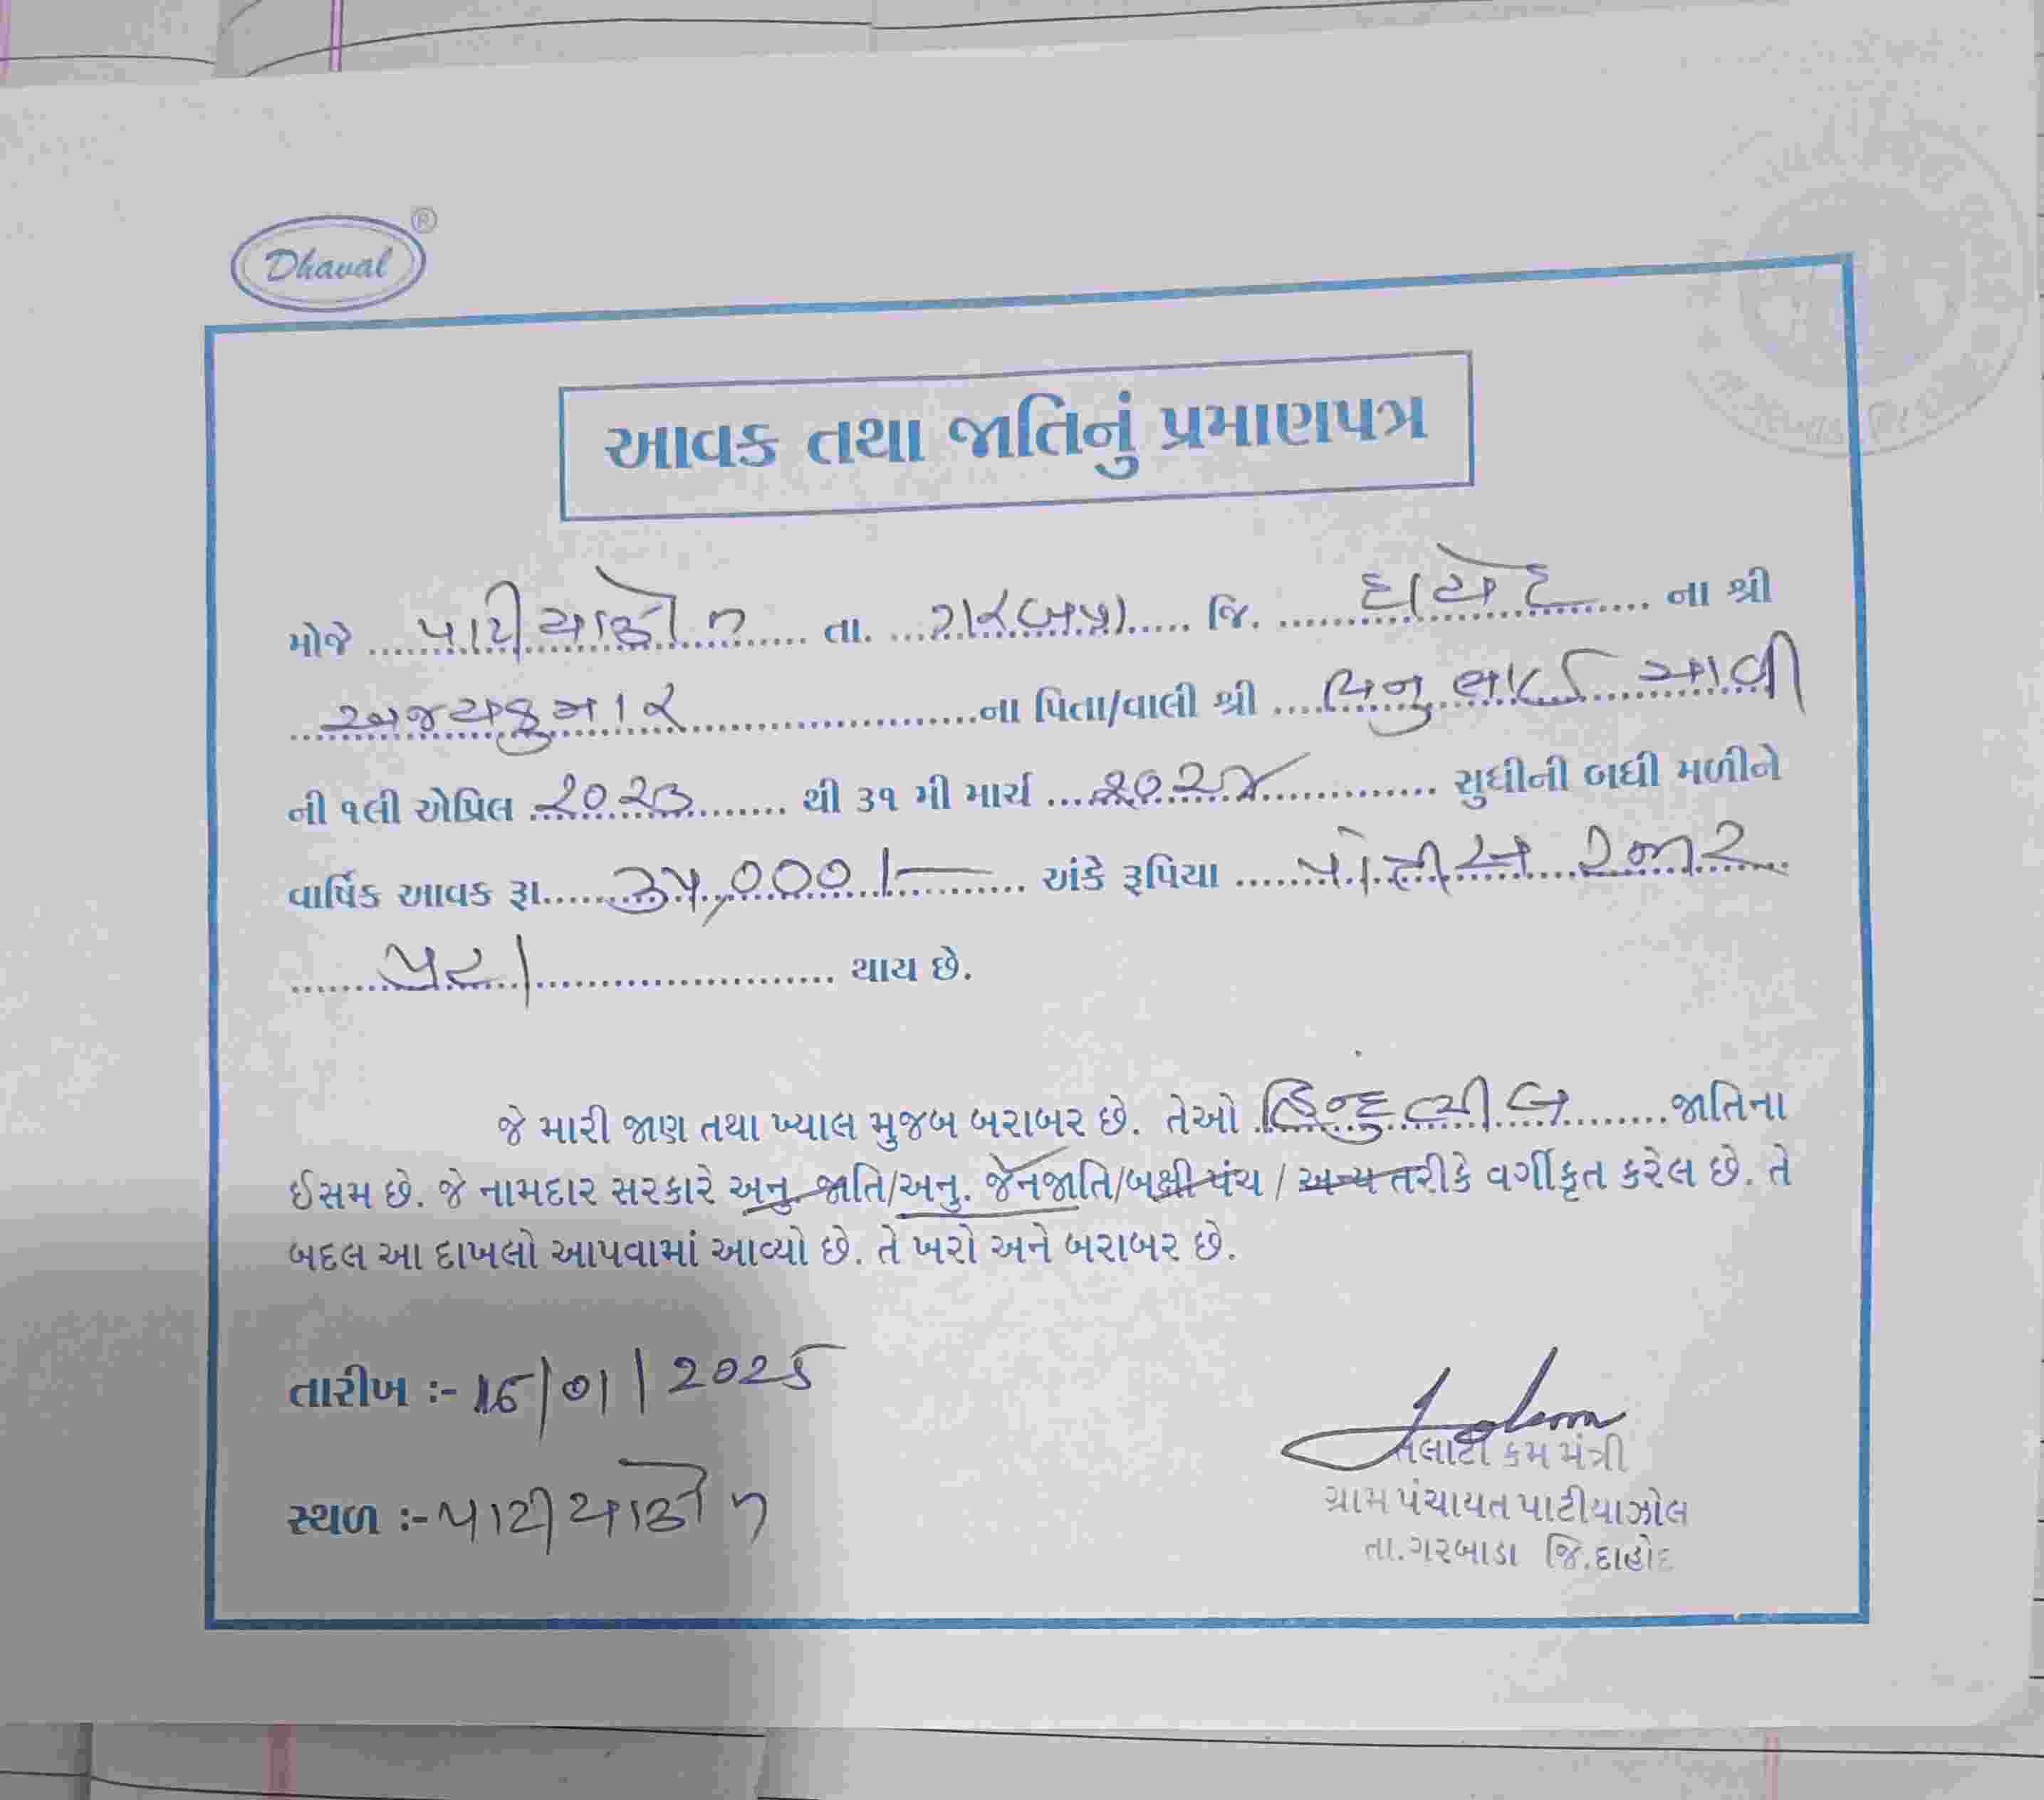 Dhaval ®
આવક તથા જાતિનું પ્રમાણપત્ર
મોજે પાટીયાઝોલ તા. ગરબાડા જિ. દાહોદ ના શ્રી
અજયકુમાર ના પિતા/વાલી શ્રી
ની ૧લી એપ્રિલ ૨૦૨૩ થી ૩૧ મી માર્ચ ૨૦૨૪ સુધીની બધી મળીને
વાર્ષિક આવક રૂા. ૩૫,૦૦૦/- અંકે રૂપિયા પાંત્રીસ હજાર
પુરા થાય છે.
જે મારી જાણ તથા ખ્યાલ મુજબ બરાબર છે. તેઓ હિન્દુ ભીલ જાતિના
ઈસમ છે. જે નામદાર સરકારે અનુ. જાતિ/અનુ. જનજાતિ/બક્ષી પંચ / અન્ય તરીકે વર્ગીકૃત કરેલ છે. તે
બદલ આ દાખલો આપવામાં આવ્યો છે. તે ખરો અને બરાબર છે.
તારીખ :- 16/01/2025
તલાટી કમ મંત્રી
ગ્રામ પંચાયત પાટીયાઝોલ
તા.ગરબાડા જિ.દાહોદ
સ્થળ :- પાટીયાઝોલ